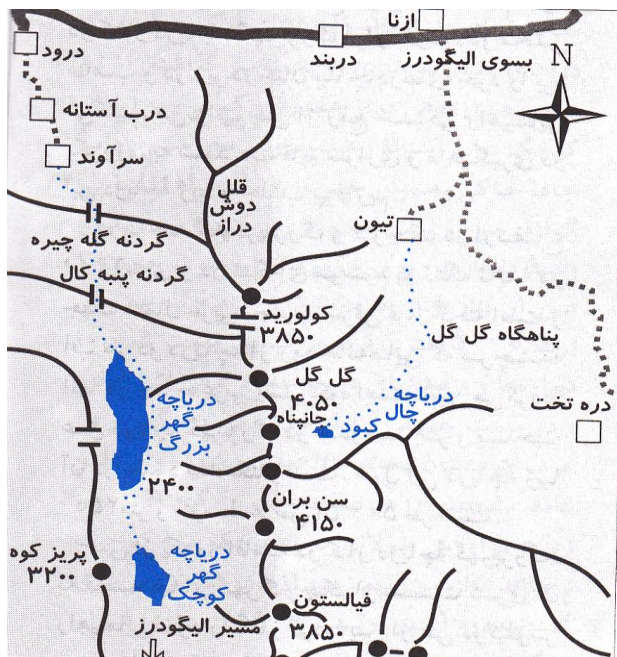 ازنا
درود
دربند
بسوی الیگودرز
N
درب آستانه
سرآوند
قلل
دوش
دراز
تیون
گردنه گله چیره
گردنه پنبه کال
کولورید
۳۸۵۰
پناهگاه گل گل
گل گل
۴۰۵۰
دریاچه
گهر
بزرگ
دریاچه
چال کبود
جانپناه
دره تخت
۲۴۰۰
سن بران
۴۱۵۰
پریز کوه
۳۲۰۰
دریاچه
گهر
کوچک
فیالستون
۳۸۵۰
مسیر الیگودرز